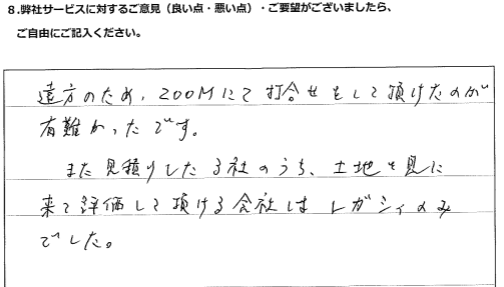 8.弊社サービスに対するご意見（良い点・悪い点）・ご要望がございましたら、
ご自由にご記入ください。
遠方のため、ZOOMにて打合せをして頂けたのが
有難かったです。
また見積りした3社のうち、土地を見に
来て評価して頂ける会社はレガシィのみ
でした。